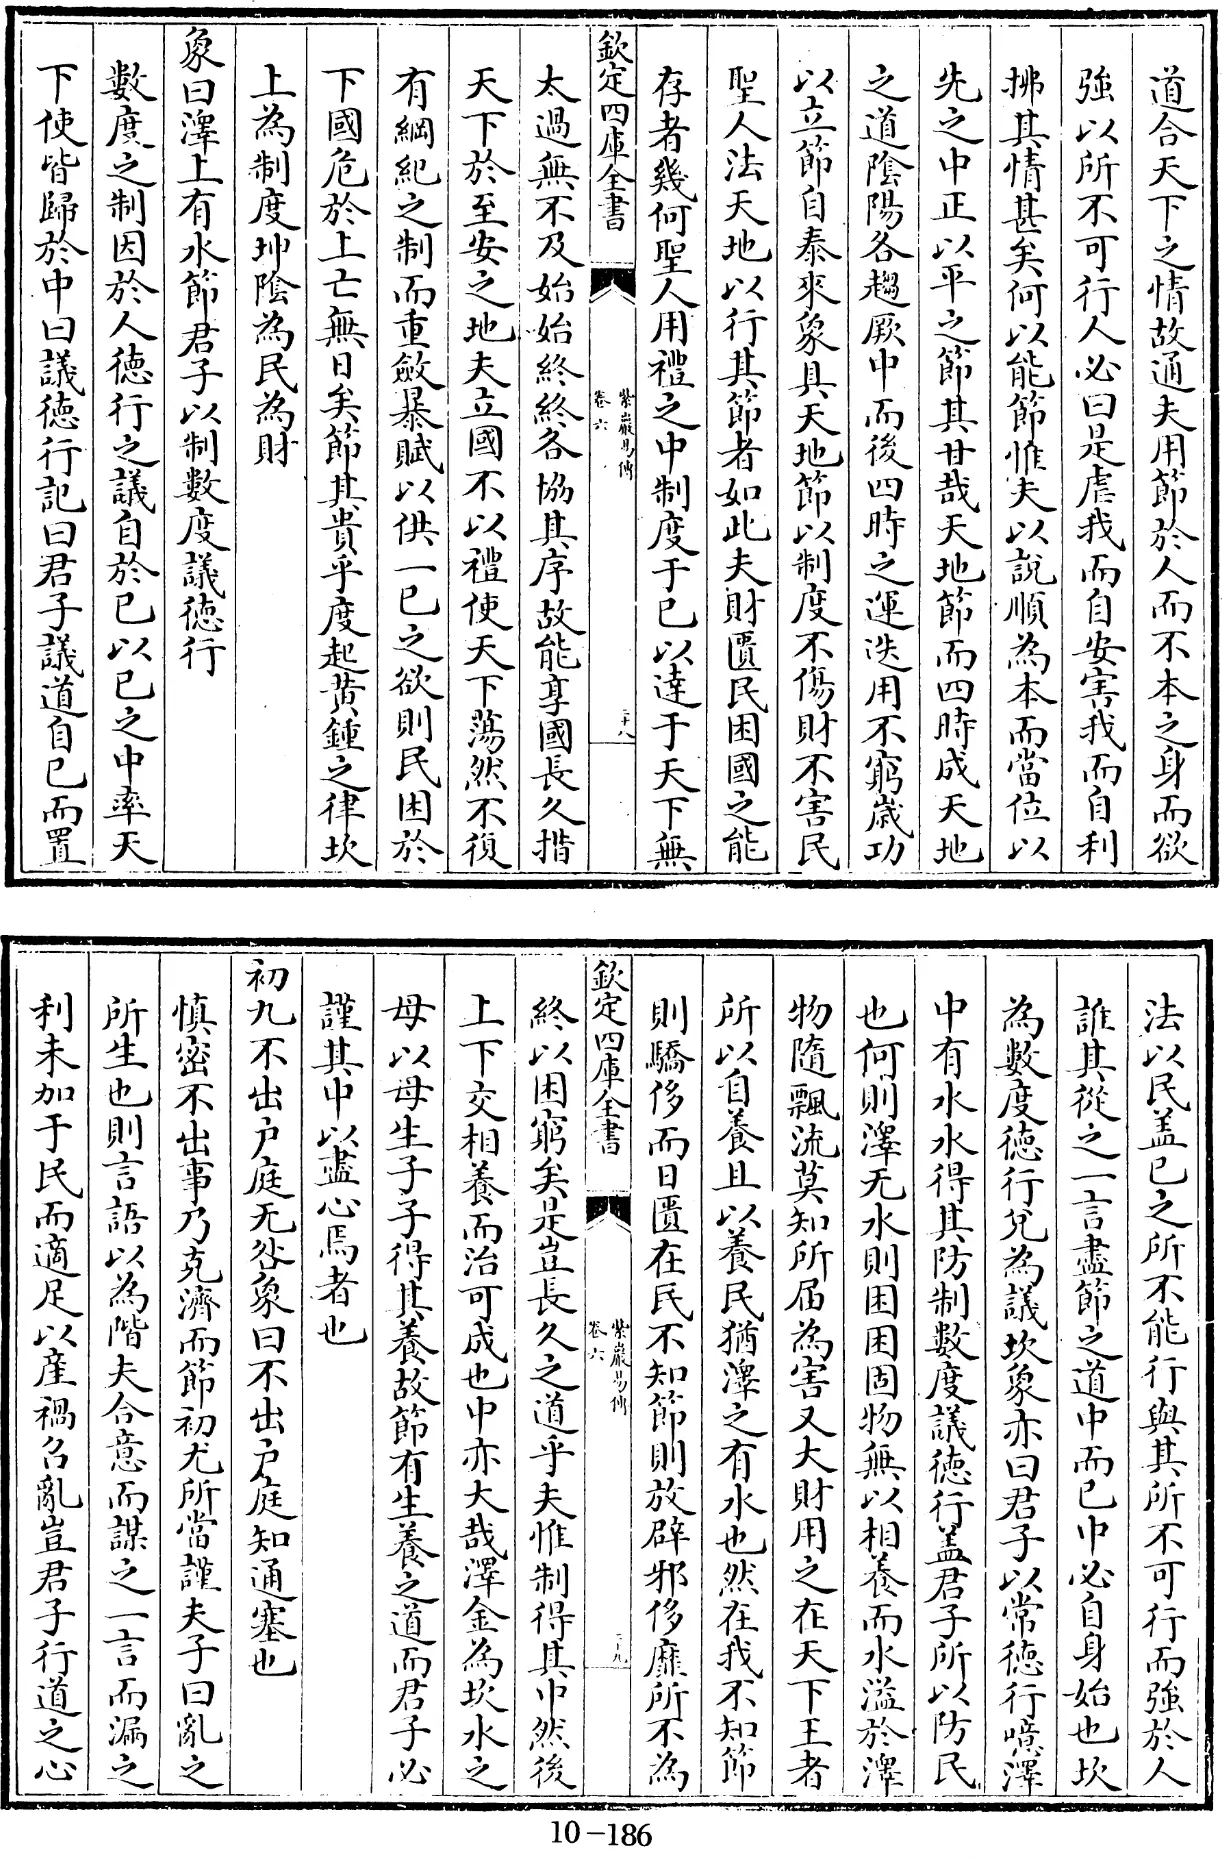 道合天下之情故通夫用節於人而不本之身而欲
強以所不可行人必曰是虐我而自安害我而自利
拂其情甚矣何以能節惟夫以說順為本而當位以
先之中正以平之節其甘哉天地節而四時成天地
之道陰陽各趨厥中而後四時之運迭用不窮歲功
以立節自泰來象具天地節以制度不傷財不害民
聖人法天地以行其節者如此夫財匱民困國之能
存者幾何聖人用禮之中制度于已以達于天下無
欽定四庫全書
紫巖易傳
卷六
三十八
太過無不及始始終終各協其序故能享國長久措
天下於至安之地夫立國不以禮使天下蕩然不復
有綱紀之制而重斂暴賦以供一已之欲則民困於
下國危於上亡無日矣節其貴乎度起黄鍾之律坎
上為制度坤陰為民為財
象曰澤上有水節君子以制數度議徳行
數度之制因於人徳行之議自於已以已之中率天
下使皆歸於中曰議徳行記曰君子議道自已而置
法以民盖已之所不能行與其所不可行而強於人
誰其從之一言盡節之道中而已中必自身始也坎
為數度徳行兌為議坎象亦曰君子以常徳行噫澤
中有水水得其防制數度議徳行盖君子所以防民
也何則澤无水則困困固物無以相養而水溢於澤
物隨飄流莫知所届為害又大財用之在天下王者
所以自養且以養民猶澤之有水也然在我不知節
則驕侈而日匱在民不知節則放辟邪侈靡所不為
欽定四庫全書
紫巖易傳
卷六
三十九
終以困窮矣是豈長久之道乎夫惟制得其中然後
上下交相養而治可成也中亦大哉澤金為坎水之
母以母生子子得其養故節有生養之道而君子必
謹其中以盡心焉者也
初九不出户庭无咎象曰不出户庭知通塞也
慎密不出事乃克濟而節初尤所當謹夫子曰亂之
所生也則言語以為階夫合意而謀之一言而漏之
利未加于民而適足以産禍召亂豈君子行道之心
10-186